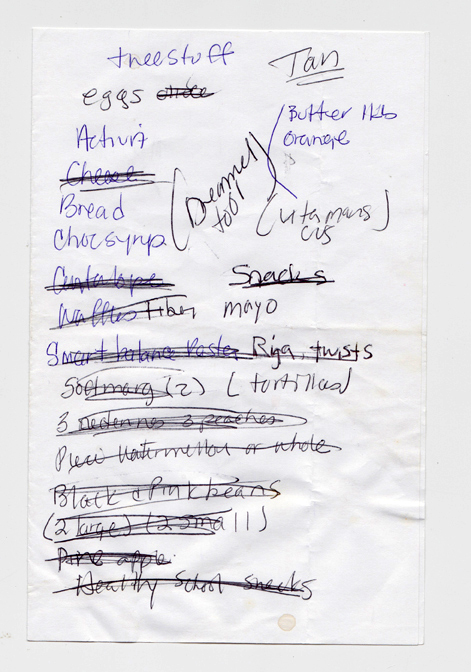 treestuff
Tan
eggs
Butter 1lb
orange
Activi
Cheese
(Dremel
tool
Bread
(Vitamans
cvs
Chocsyrup
Cantalope
Snacks
Waffles Fiber
mayo
Smart balance
Riga, twists
Softmarg (2)
(tortillas)
3 nectarines 3 peaches
Piece Watermellon or whole
Black & Pink beans
(2 large) (2 small)
Pine apple
Healthy School snacks